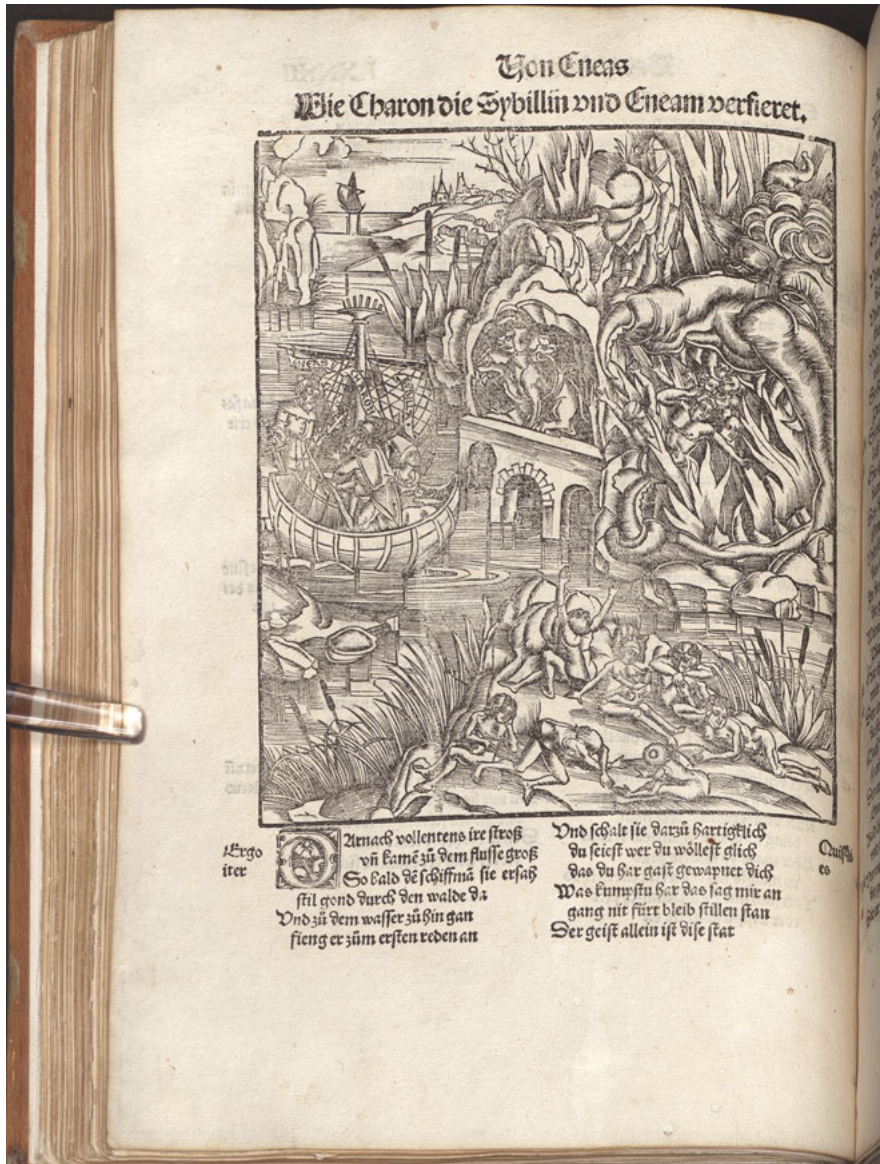 Von Eneas
Wie Charon die Sybillin vnd Eneam verfieret.
Ergo
iter
DArnach vollentens ire stroß
vñ kamē zů dem flusse groß
So bald dē schiffmā sie ersah
stil gond durch den walde da
Vnd zů dem wasser zůhin gan
fieng er zům ersten reden an
Vnd schalt sie darzů hartigklich
du seiest wer du wöllest glich
das du har gast gewapnet dich
Was kumpstu har das sag mir an
gang nit fürt bleib stillen stan
Der geist allein ist dise stat
es